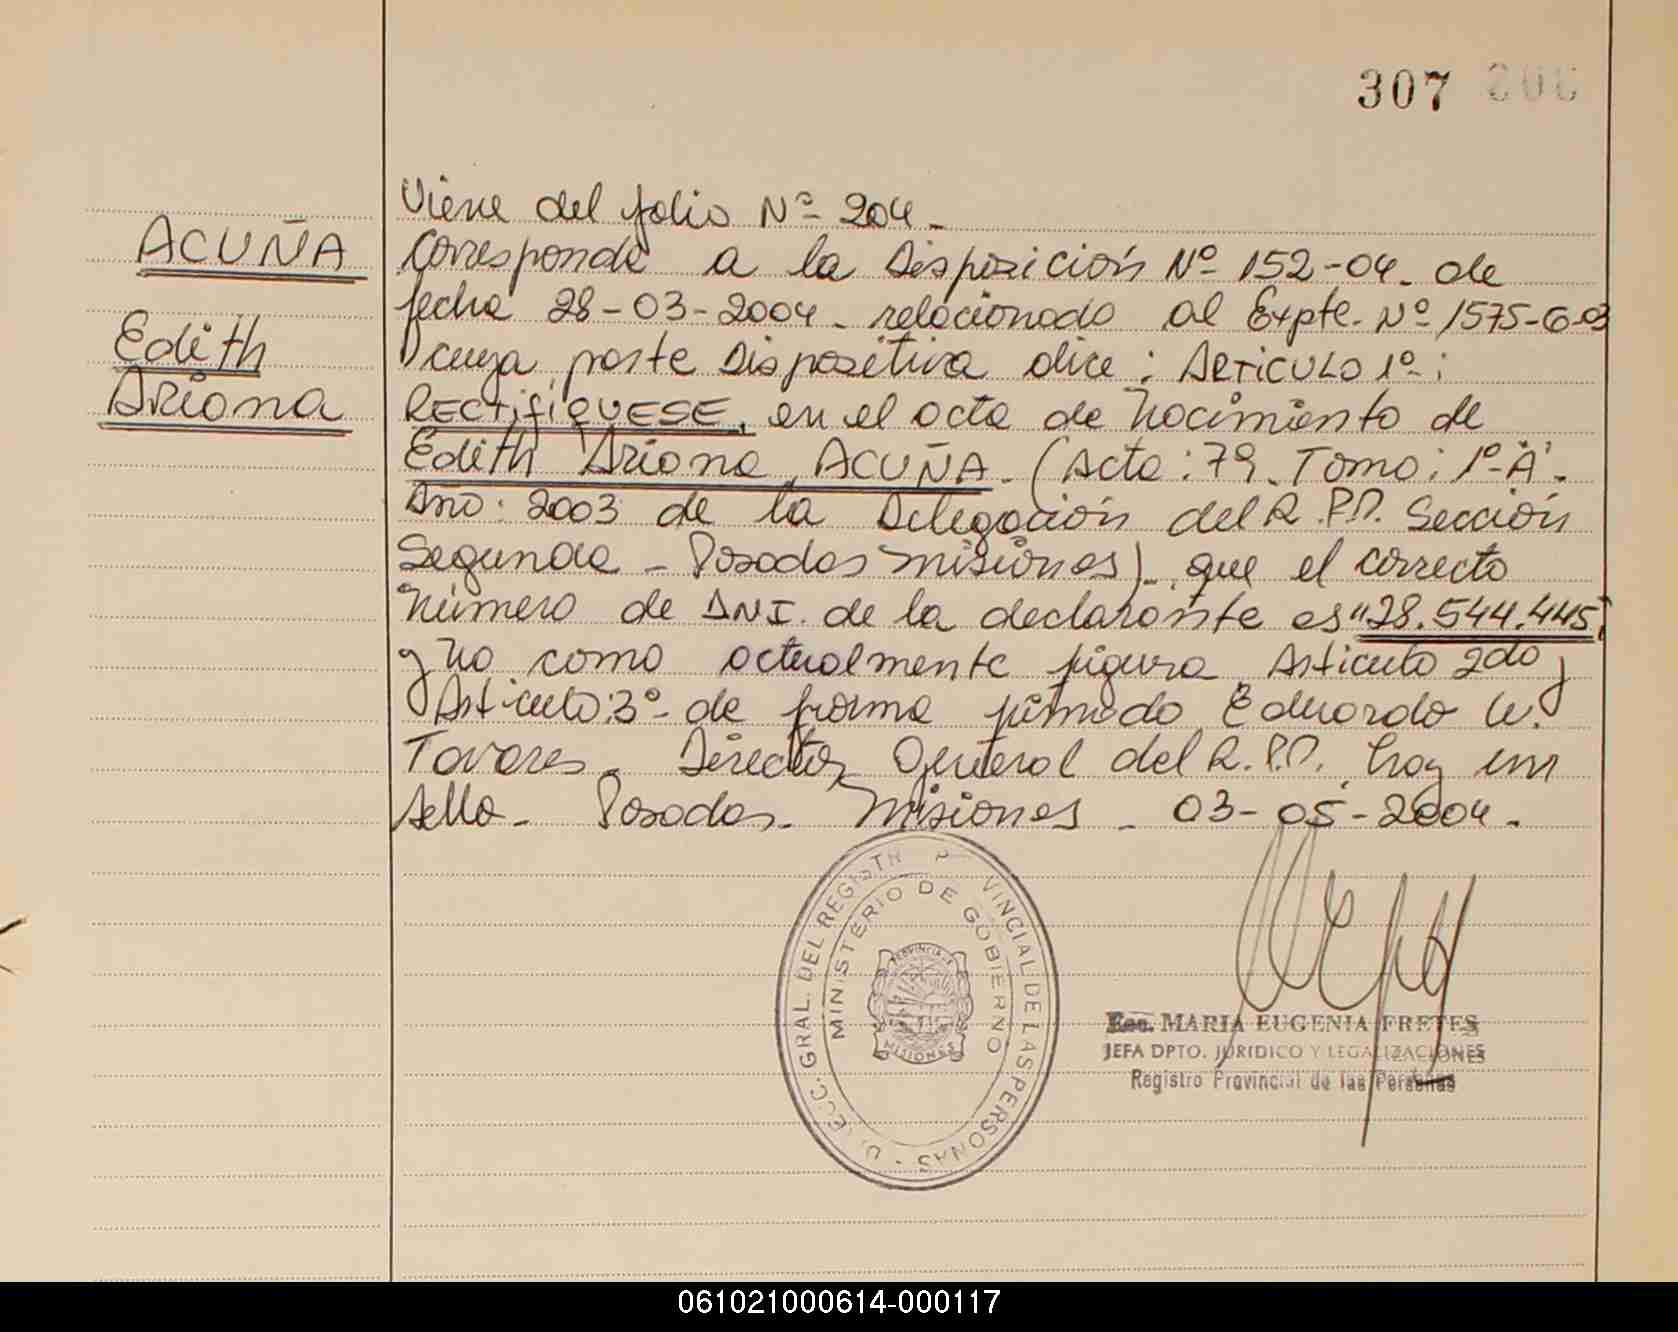 307 306
Viene del folio Nº 204.
ACUÑA
Corresponde a la Disposición Nº 152-04. de
fecha 28-03-2004. relacionado al Expte. Nº 1575-G-03
Edith
cuya parte Dispositiva dice: ARTICULO 1º:
Ariana
RECTIFIQUESE, en el acta de Nacimiento de
Edith Ariana ACUÑA. (Acta: 79. Tomo: 1º-A.
Año: 2003 de la Delegación del R.P.P. Sección
Segunda - Posadas Misiones). que el correcto
Número de DNI. de la declarante es "28.544.445"
y no como actualmente figura. Articulo 2do y
Articulo: 3º de forma firmado Eduardo W.
Tavares. Director General del R.P.P. hay un
sello. Posadas. Misiones. 03-05-2004.
DIRECC. GRAL. DEL REGISTR PROVINCIAL DE LAS PERSONAS
MINISTERIO DE GOBIERNO
PROVINCIA DE
MISIONES
Esc. MARIA EUGENIA FRETES
JEFA DPTO. JURIDICO Y LEGALIZACIONES
Registro Provincial de las Personas
061021000614-000117